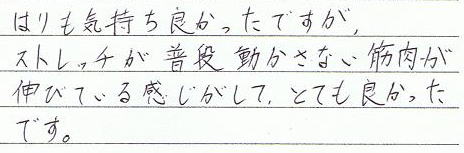 はりも気持ち良かったですが、
ストレッチが普段動かさない筋肉が
伸びている感じがして、とても良かった
です。